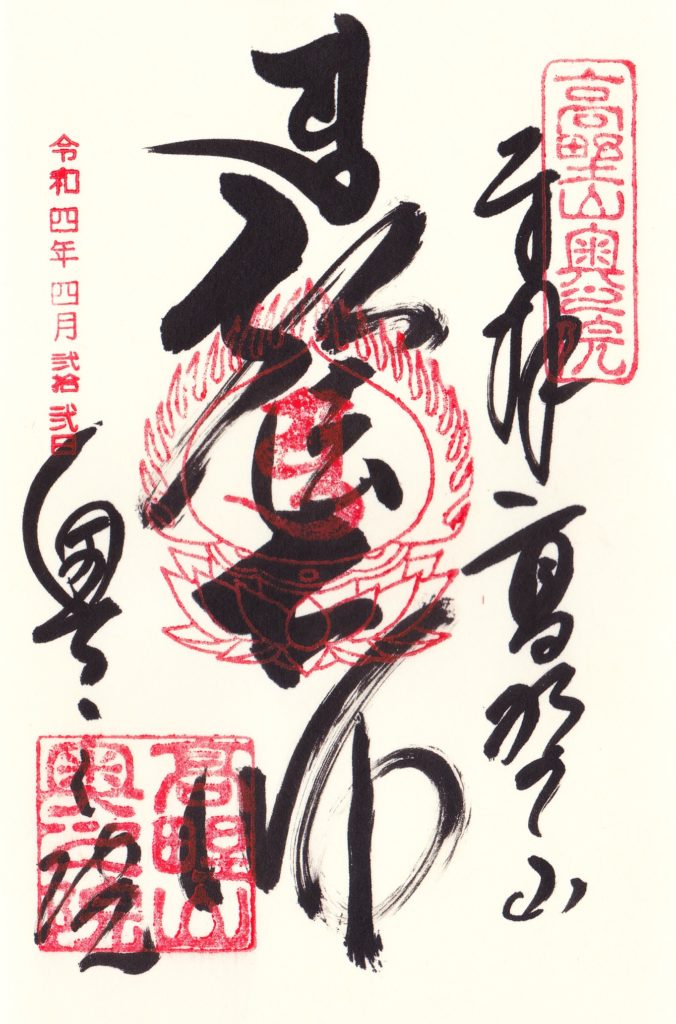 高野山奥之院
奉拝 高野山
弘法大師
令和四年四月弐拾弐日
奥之院
高野山
奥之院